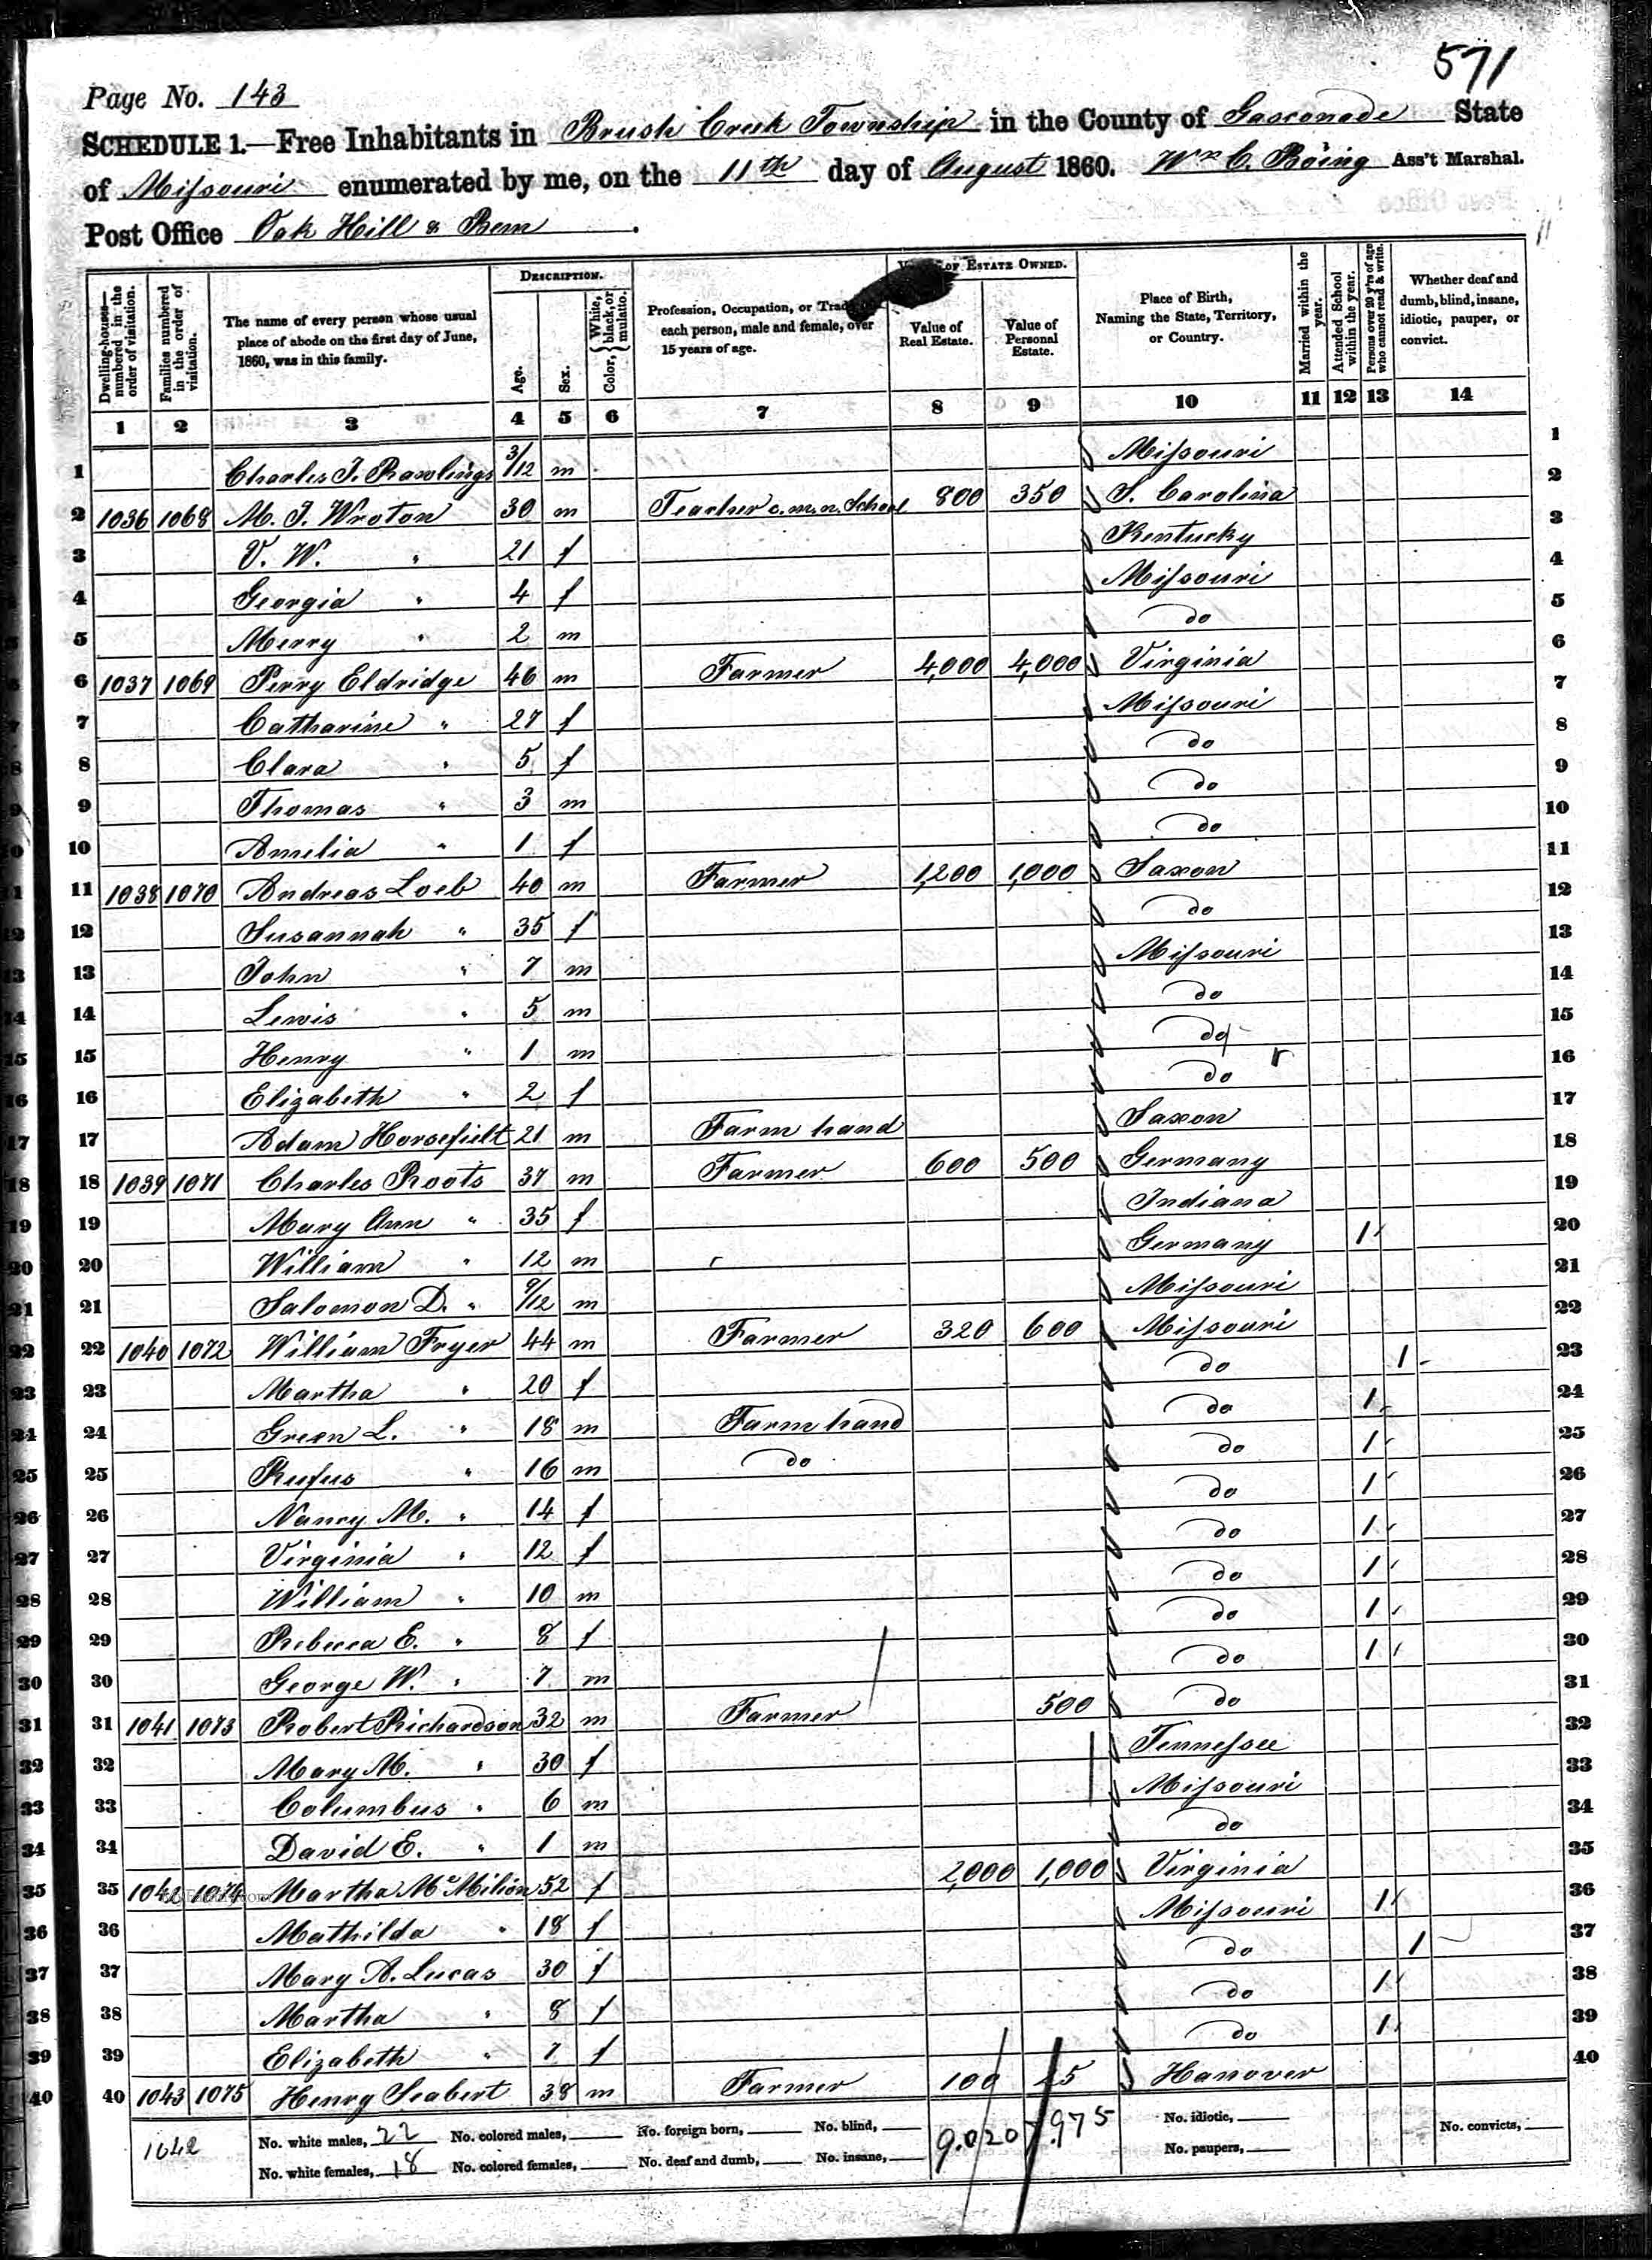 571
Page No. 143
SCHEDULE 1.—Free Inhabitants in Brush Creek Township in the County of Gasconade State
of Missouri enumerated by me, on the 11th day of August 1860. Wm C. Boing Ass't Marshal.
Post Office Oak Hill & Bem.
Dwelling-houses—numbered in the order of visitation.
Families numbered in the order of visitation.
The name of every person whose usual place of abode on the first day of June, 1860, was in this family.
DESCRIPTION.
Age.
Sex.
Color, { White, black, or mulatto.
Profession, Occupation, or Trade of each person, male and female, over 15 years of age.
OF ESTATE OWNED.
Value of Real Estate.
Value of Personal Estate.
Place of Birth, Naming the State, Territory, or Country.
Married within the year.
Attended School within the year.
Persons over 20 y'rs of age who cannot read & write.
Whether deaf and dumb, blind, insane, idiotic, pauper, or convict.
1 2 3 4 5 6 7 8 9 10 11 12 13 14
1 Charles J. Rawlings 3/12 m Missouri 1
2 1036 1068 M. J. Wroton 30 m Teacher c.m.n. School 800 350 S. Carolina 2
3 V. W. " 21 f Kentucky 3
4 Georgia " 4 f Missouri 4
5 Merry " 2 m do 5
6 1037 1069 Perry Eldridge 46 m Farmer 4,000 4,000 Virginia 6
7 Catharine " 27 f Missouri 7
8 Clara " 5 f do 8
9 Thomas " 3 m do 9
10 Amelia " 1 f do 10
11 1038 1070 Andreas Loeb 40 m Farmer 1,200 1,000 Saxon 11
12 Susannah " 35 f do 12
13 John " 7 m Missouri 13
14 Lewis " 5 m do 14
15 Henry " 1 m do 15
16 Elizabeth " 2 f do 16
17 Adam Horsefielt 21 m Farm hand Saxon 17
18 1039 1071 Charles Roots 37 m Farmer 600 500 Germany 18
19 Mary Ann " 35 f Indiana 19
20 William " 12 m Germany 1 20
21 Salomon D. " 9/12 m Missouri 21
22 1040 1072 William Fryer 44 m Farmer 320 600 Missouri 22
23 Martha " 20 f do 1 23
24 Green L. " 18 m Farm hand do 1 24
25 Rufus " 16 m do do 1 25
26 Nancy M. " 14 f do 1 26
27 Virginia " 12 f do 1 27
28 William " 10 m do 1 28
29 Rebecca E. " 8 f do 1 29
30 George W. " 7 m do 1 30
31 1041 1073 Robert Richardson 32 m Farmer 500 do 31
32 Mary M. " 30 f Tennessee 32
33 Columbus " 6 m Missouri 33
34 David E. " 1 m do 34
35 1042 1074 Martha McMilion 52 f 2,000 1,000 Virginia 35
36 Mathilda " 18 f Missouri 1 36
37 Mary A. Lucas 30 f do 1 37
38 Martha " 8 f do 1 38
39 Elizabeth " 7 f do 1 39
40 1043 1075 Henry Seabert 38 m Farmer 100 25 Hanover 40
1042 No. white males, 22 No. colored males, No. foreign born, No. blind, 9.020 7.975 No. idiotic, No. convicts,
No. white females, 18 No. colored females, No. deaf and dumb, No. insane, No. paupers,